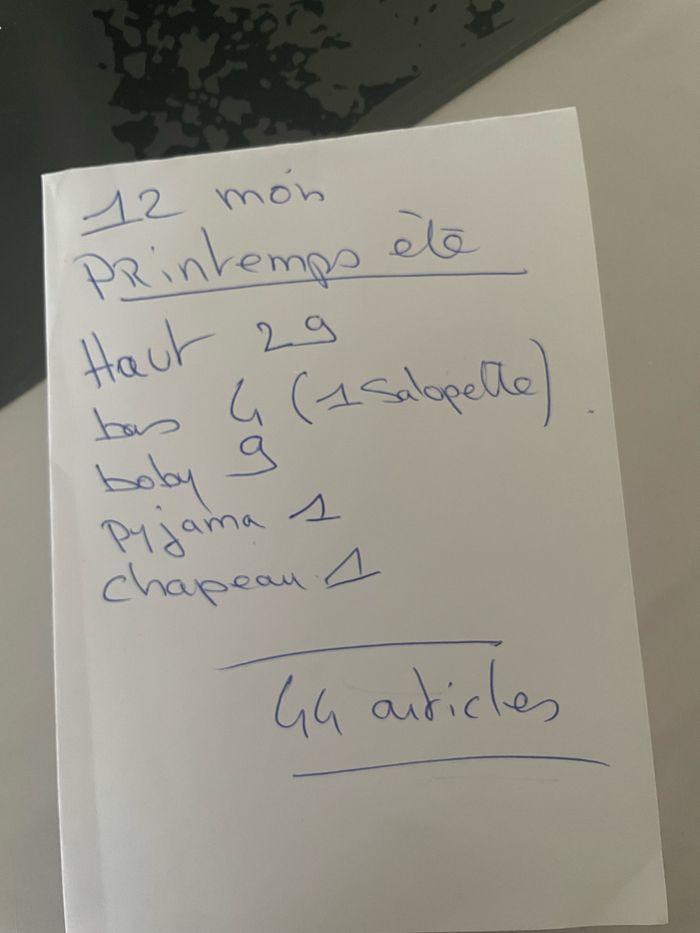 12 mois
Printemps été
Haut 29
bas 4 (1 Salopette)
boby 9
pyjama 1
chapeau 1
44 articles